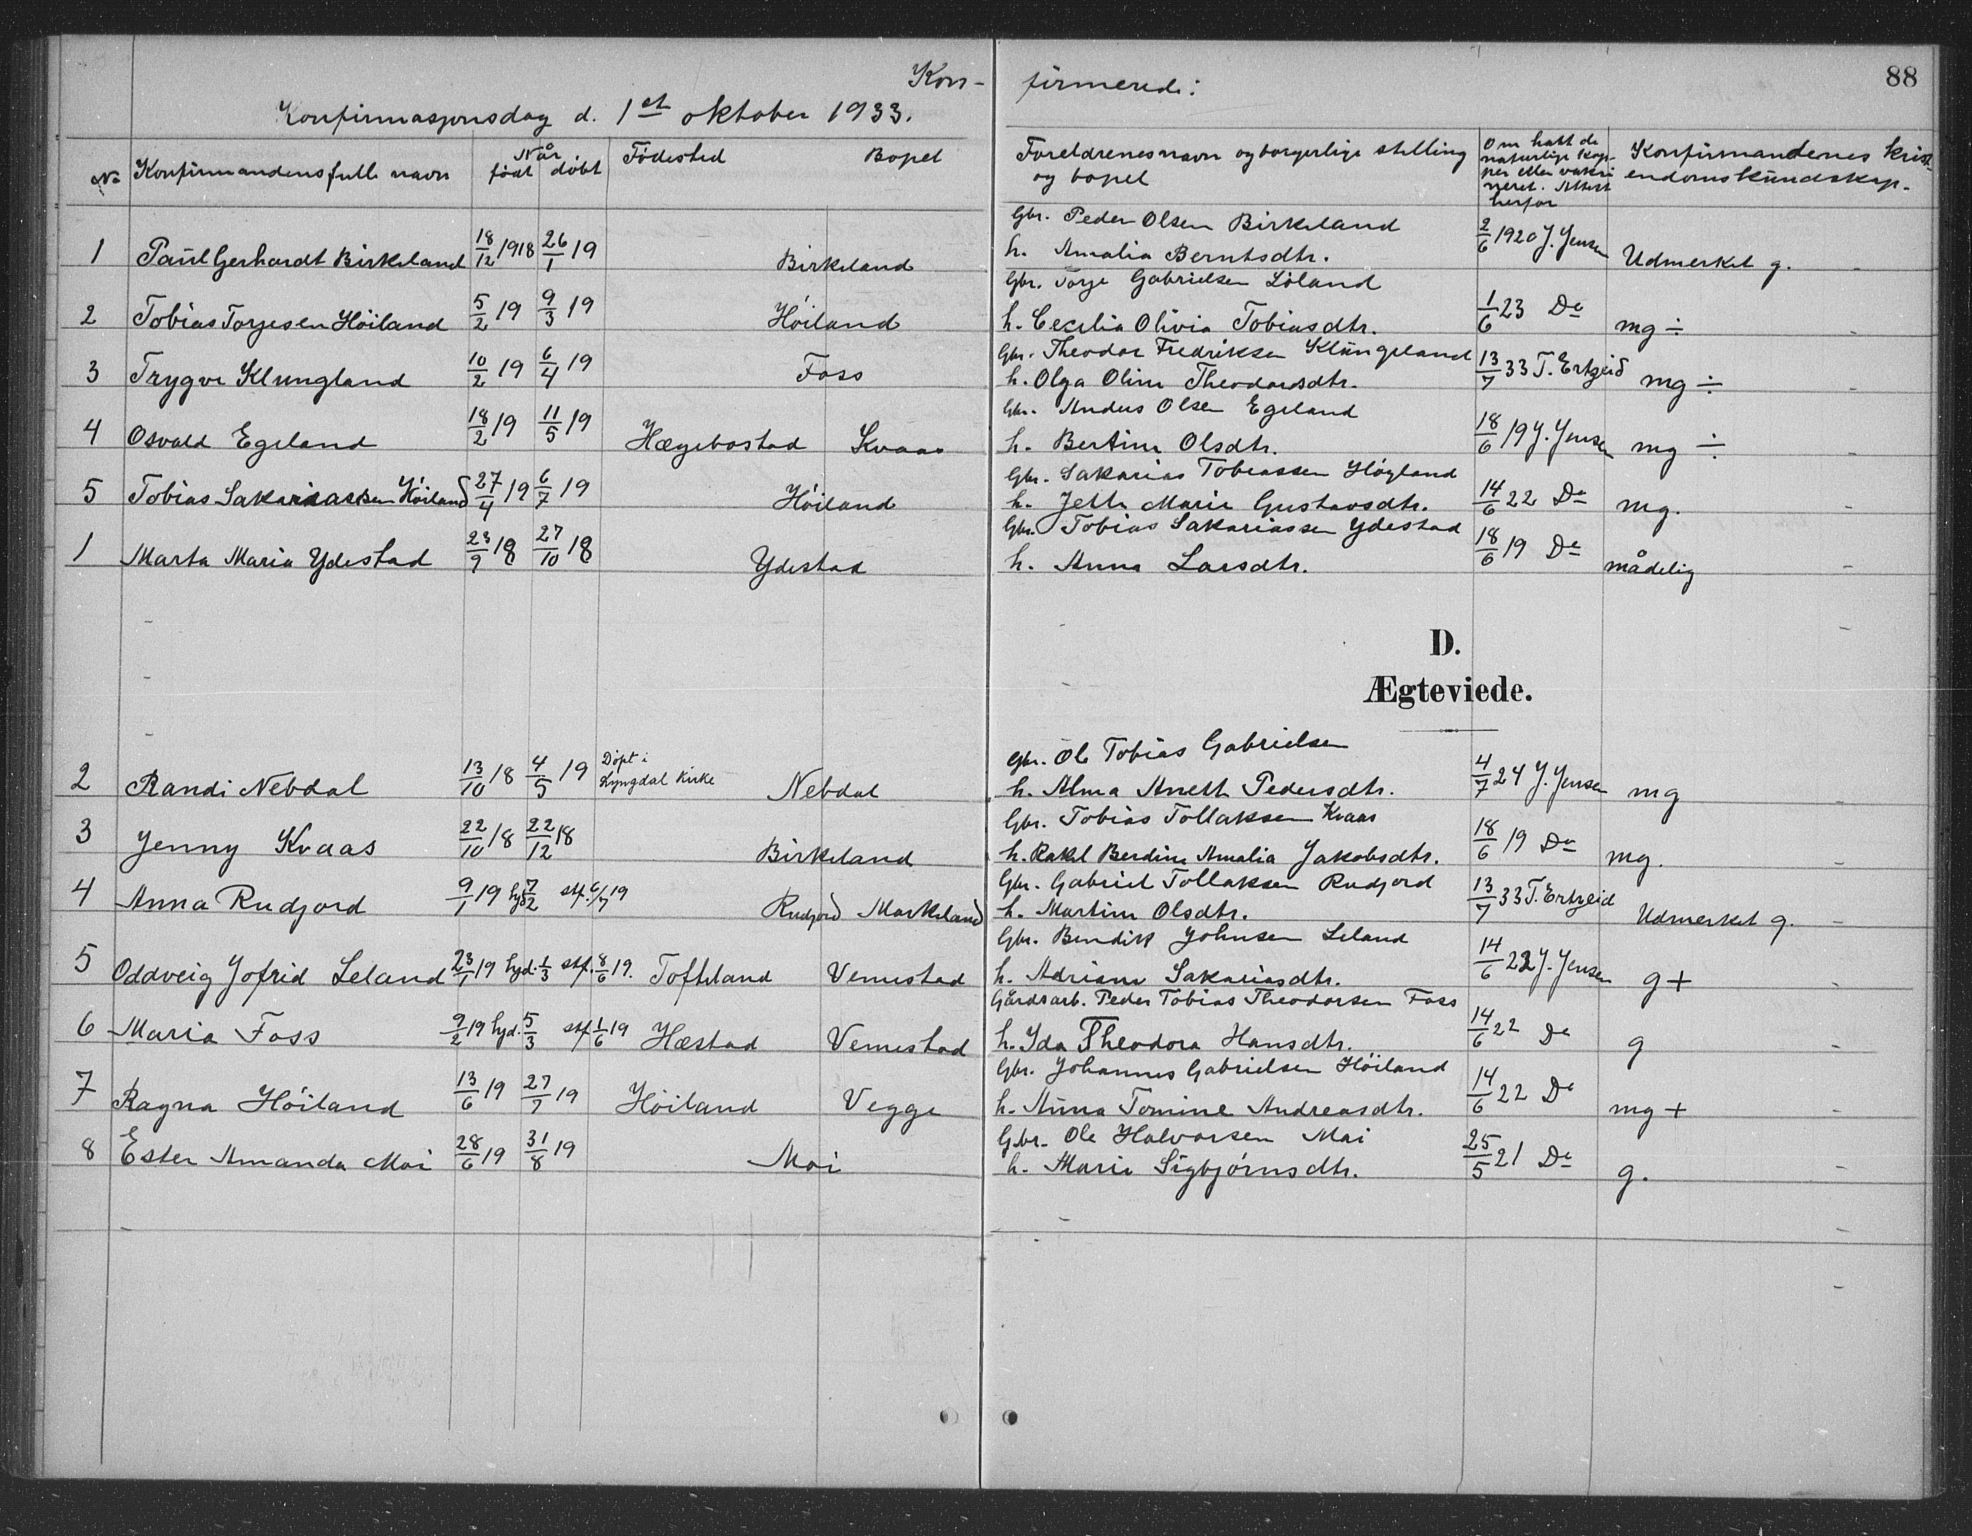 88
Kon- firmerede:
Konfirmasjonsdag d. 1st oktober 1933.
No Konfirmandens fulle navn Når født døbt Fødested Bopel Foreldrenes navn og borgerlige stilling og bopel Om hatt de naturlige kopper eller vaksineret. Attest herfor Konfirmandenes kristendomskundskap.
Gbr. Peder Olsen Birkeland
1 Paul Gerhardt Birkeland 18/12 1918 26/1 19 Birkeland h. Amalia Berntsdtr. 2/6 1920 J. Jensen Udmerket g.
Gbr. Torje Gabrielsen Löland
2 Tobias Torjesen Höiland 5/2 19 9/3 19 Höiland h. Cecilia Olivia Tobiasdtr. 1/6 23 Do mg ÷
Gbr. Theodor Fredriksen Klungeland
3 Trygve Klungland 10/2 19 6/4 19 Foss h. Olga Oline Theodorsdtr. 13/7 33 T. Ertzeid mg ÷
Gbr. Anders Olsen Egeland
4 Osvald Egeland 18/2 19 11/5 19 Hægebostad Kvaas h. Bertine Olsdtr. 18/6 19 J. Jensen mg ÷
Gbr. Sakarias Tobiassen Høyland
5 Tobias Sakariassen Höiland 27/4 19 6/7 19 Höiland h. Jette Marie Gustavsdtr. 14/6 22 Do mg.
Gbr. Tobias Sakariassen Ydestad
1 Marta Maria Ydestad 23/9 18 27/10 18 Ydestad h. Anna Larsdtr. 18/6 19 Do mådelig
D.
Ægteviede.
Gbr. Ole Tobias Gabrielsen
2 Randi Nebdal 13/10 18 4/5 19 Døpt i Lyngdal Kirke Nebdal h. Alma Anette Pedersdtr. 4/7 24 J. Jensen mg
Gbr. Tobias Tollaksen Kvaas
3 Jenny Kvaas 22/10 18 22/12 18 Birkeland h. Rakel Berdine Amalia Jakobsdtr. 18/6 19 Do mg.
Gbr. Gabriel Tollaksen Rudjord
4 Anna Rudjord 9/1 19 hjd. 7/2 stf. 6/7 19 Rudjord Markeland h. Martine Olsdtr. 13/7 33 T. Ertzeid Udmerket g.
Gbr. Bendik Johnsen Leland
5 Oddveig Jofrid Leland 23/1 19 hjd. 1/3 stf. 8/6 19. Tofteland Vemestad h. Adriane Sakariasdtr. 14/6 22 J. Jensen g +
Gårdsarb. Peder Tobias Theodorsen Foss
6 Maria Foss 9/2 19 hjd. 5/3 stf 1/6 19 Hæstad Vemestad h. Ida Theodora Hansdtr. 14/6 22 Do g
Gbr. Johannes Gabrielsen Höiland
7 Ragna Höiland 13/6 19 27/7 19 Höiland Vegge h. Anna Tomine Andreasdtr. 14/6 22 Do mg +
Gbr. Ole Halvorsen Moi
8 Ester Amanda Moi 28/6 19 31/8 19 Moi h. Marie Sigbjörnsdtr. 25/5 21 Do g.